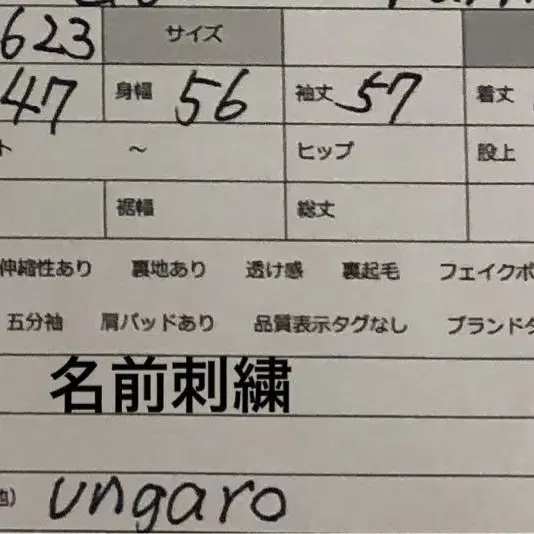 623 サイズ
47 身幅 56 袖丈 57 着丈
ト ～ ヒップ 股上
裾幅 総丈
伸縮性あり 裏地あり 透け感 裏起毛 フェイクポ
五分袖 肩パッドあり 品質表示タグなし ブランドタ
名前刺繍
他） ungaro